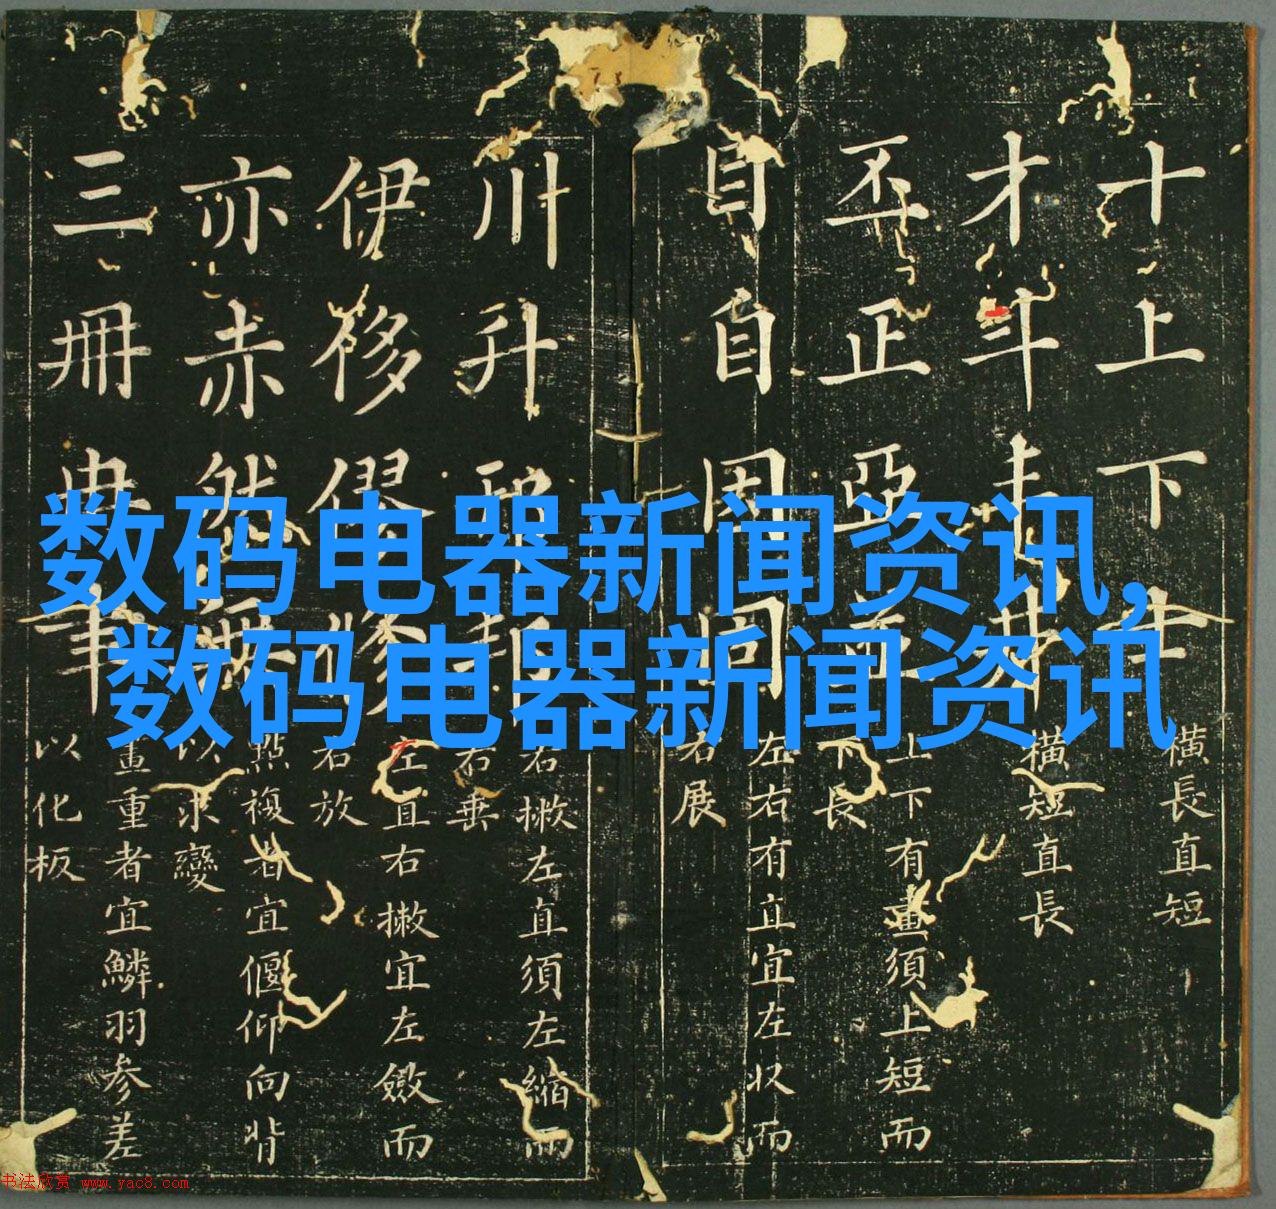 数码电器新闻资讯,
数码电器新闻资讯
十上下
橫長直短
才斗
橫短直長
丕正亞
上下有畫須上短而
下長
目自因
左右有直宜左收而
右展
川升
右撇左直須左縮而
右垂
伊侈
左直右撇宜左斂而
右放
亦赤然無
點複者宜偃仰向背
以求變
三冊
畫重者宜鱗羽参差
以化板
书法欣赏 www.yac8.com